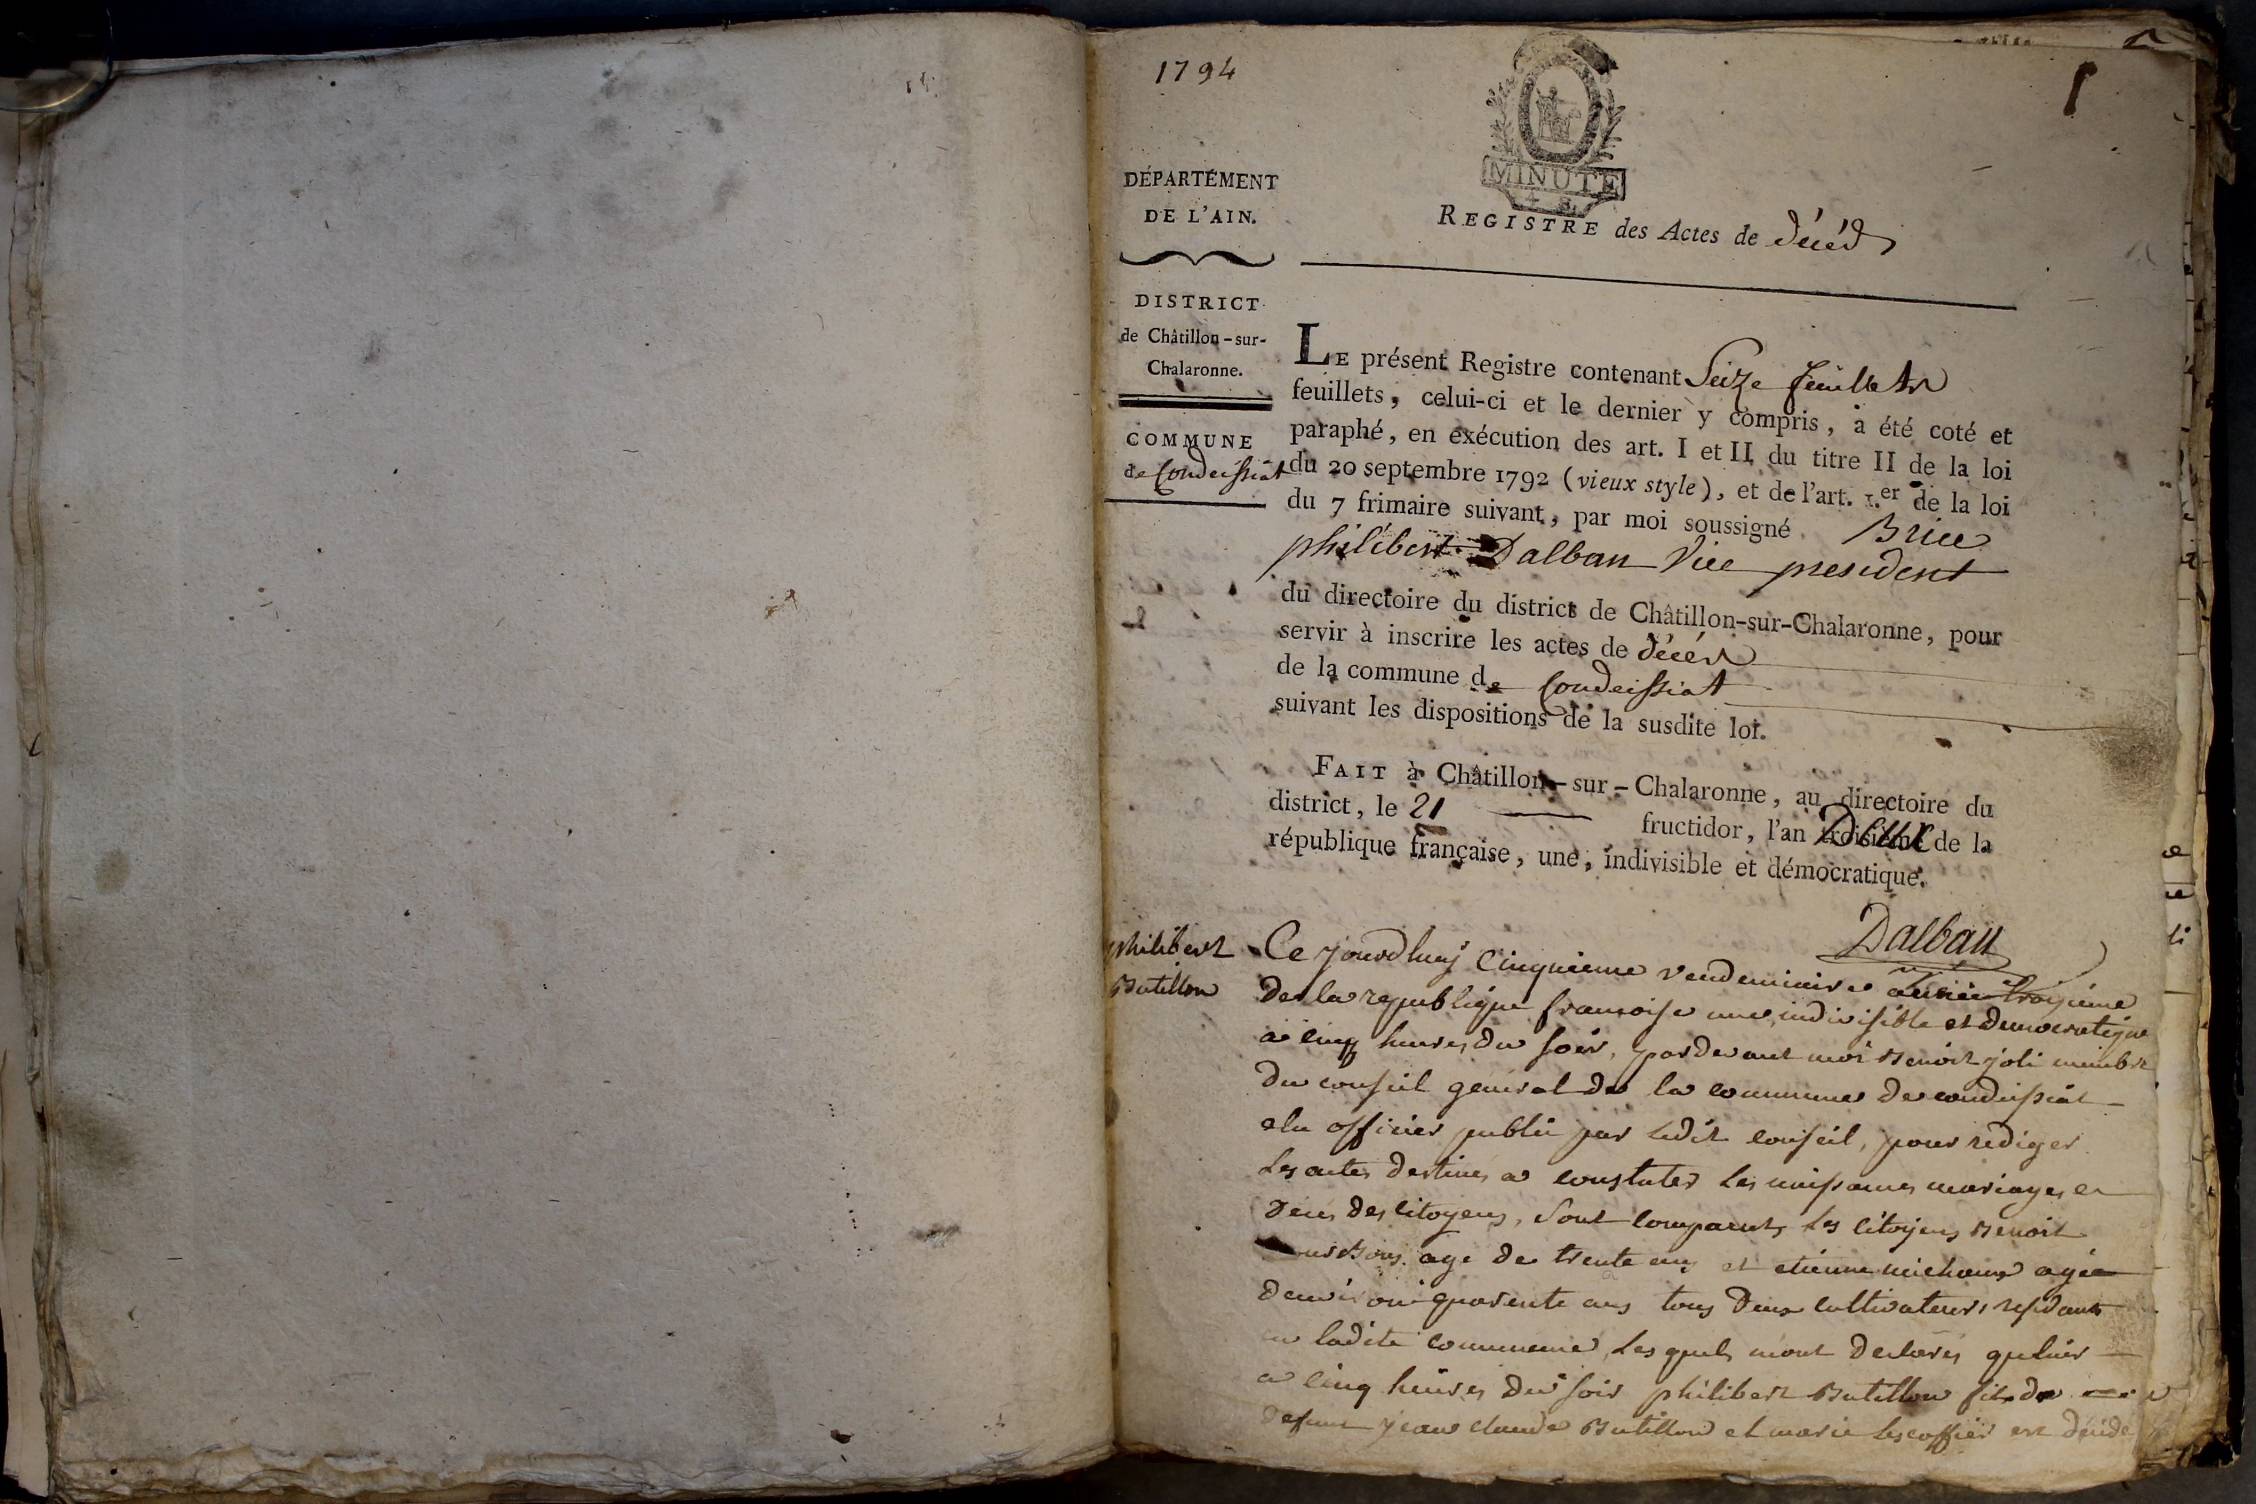 1794
MINUTE
DÉPARTEMENT
DE L'AIN.
REGISTRE des Actes de décéd
DISTRICT
de Châtillon-sur-
Chalaronne.
COMMUNE
de Condeissiat
LE présent Registre contenant Seize feuillets
feuillets, celui-ci et le dernier y compris, a été coté et
paraphé, en exécution des art. I et II du titre II de la loi
du 20 septembre 1792 (vieux style), et de l'art. 1.er de la loi
du 7 frimaire suivant, par moi soussigné Brice
philibert Dalban Vice president
du directoire du district de Châtillon-sur-Chalaronne, pour
servir à inscrire les actes de décés
de la commune de Condeissiat
suivant les dispositions de la susdite loi.
FAIT à Châtillon-sur-Chalaronne, au directoire du
district, le 21 fructidor, l'an Deux de la
république française, une, indivisible et démocratique.
Dalban
philibert
Butillon
Ce jourdhuy Cinquieme vendemiaire troisieme
de la republique francoise une indivisible et democratique
a cinq heures du soir, pardevant moi Benoit joli membre
du conseil general de la commune de condeissiat
elu officier public par ledit conseil, pour rediger
les actes destines a constater les naissances mariages et
deces des citoyens, sont comparuts les citoyens Benoit
age de trente ans et etienne michaux agée
denviron quarente ans tous deux cultivateurs residants
en ladite commune, les quels mont declarés quhier
a cinq heures du soir philibert Butillon fils de
defunt jean claude Butillon et marie lescoffier est décidé